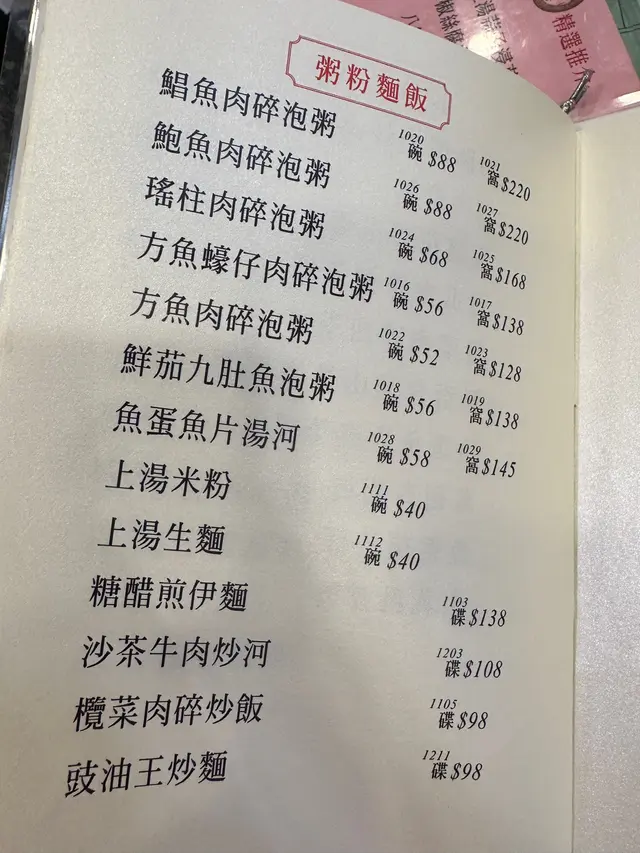 精選推
椒絲
八
粥粉麵飯
鯧魚肉碎泡粥 1020 碗 $88 1021 窩 $220
鮑魚肉碎泡粥 1026 碗 $88 1027 窩 $220
瑤柱肉碎泡粥 1024 碗 $68 1025 窩 $168
方魚蠔仔肉碎泡粥 1016 碗 $56 1017 窩 $138
方魚肉碎泡粥 1022 碗 $52 1023 窩 $128
鮮茄九肚魚泡粥 1018 碗 $56 1019 窩 $138
魚蛋魚片湯河 1028 碗 $58 1029 窩 $145
上湯米粉 1111 碗 $40
上湯生麵 1112 碗 $40
糖醋煎伊麵 1103 碟 $138
沙茶牛肉炒河 1203 碟 $108
欖菜肉碎炒飯 1105 碟 $98
豉油王炒麵 1211 碟 $98